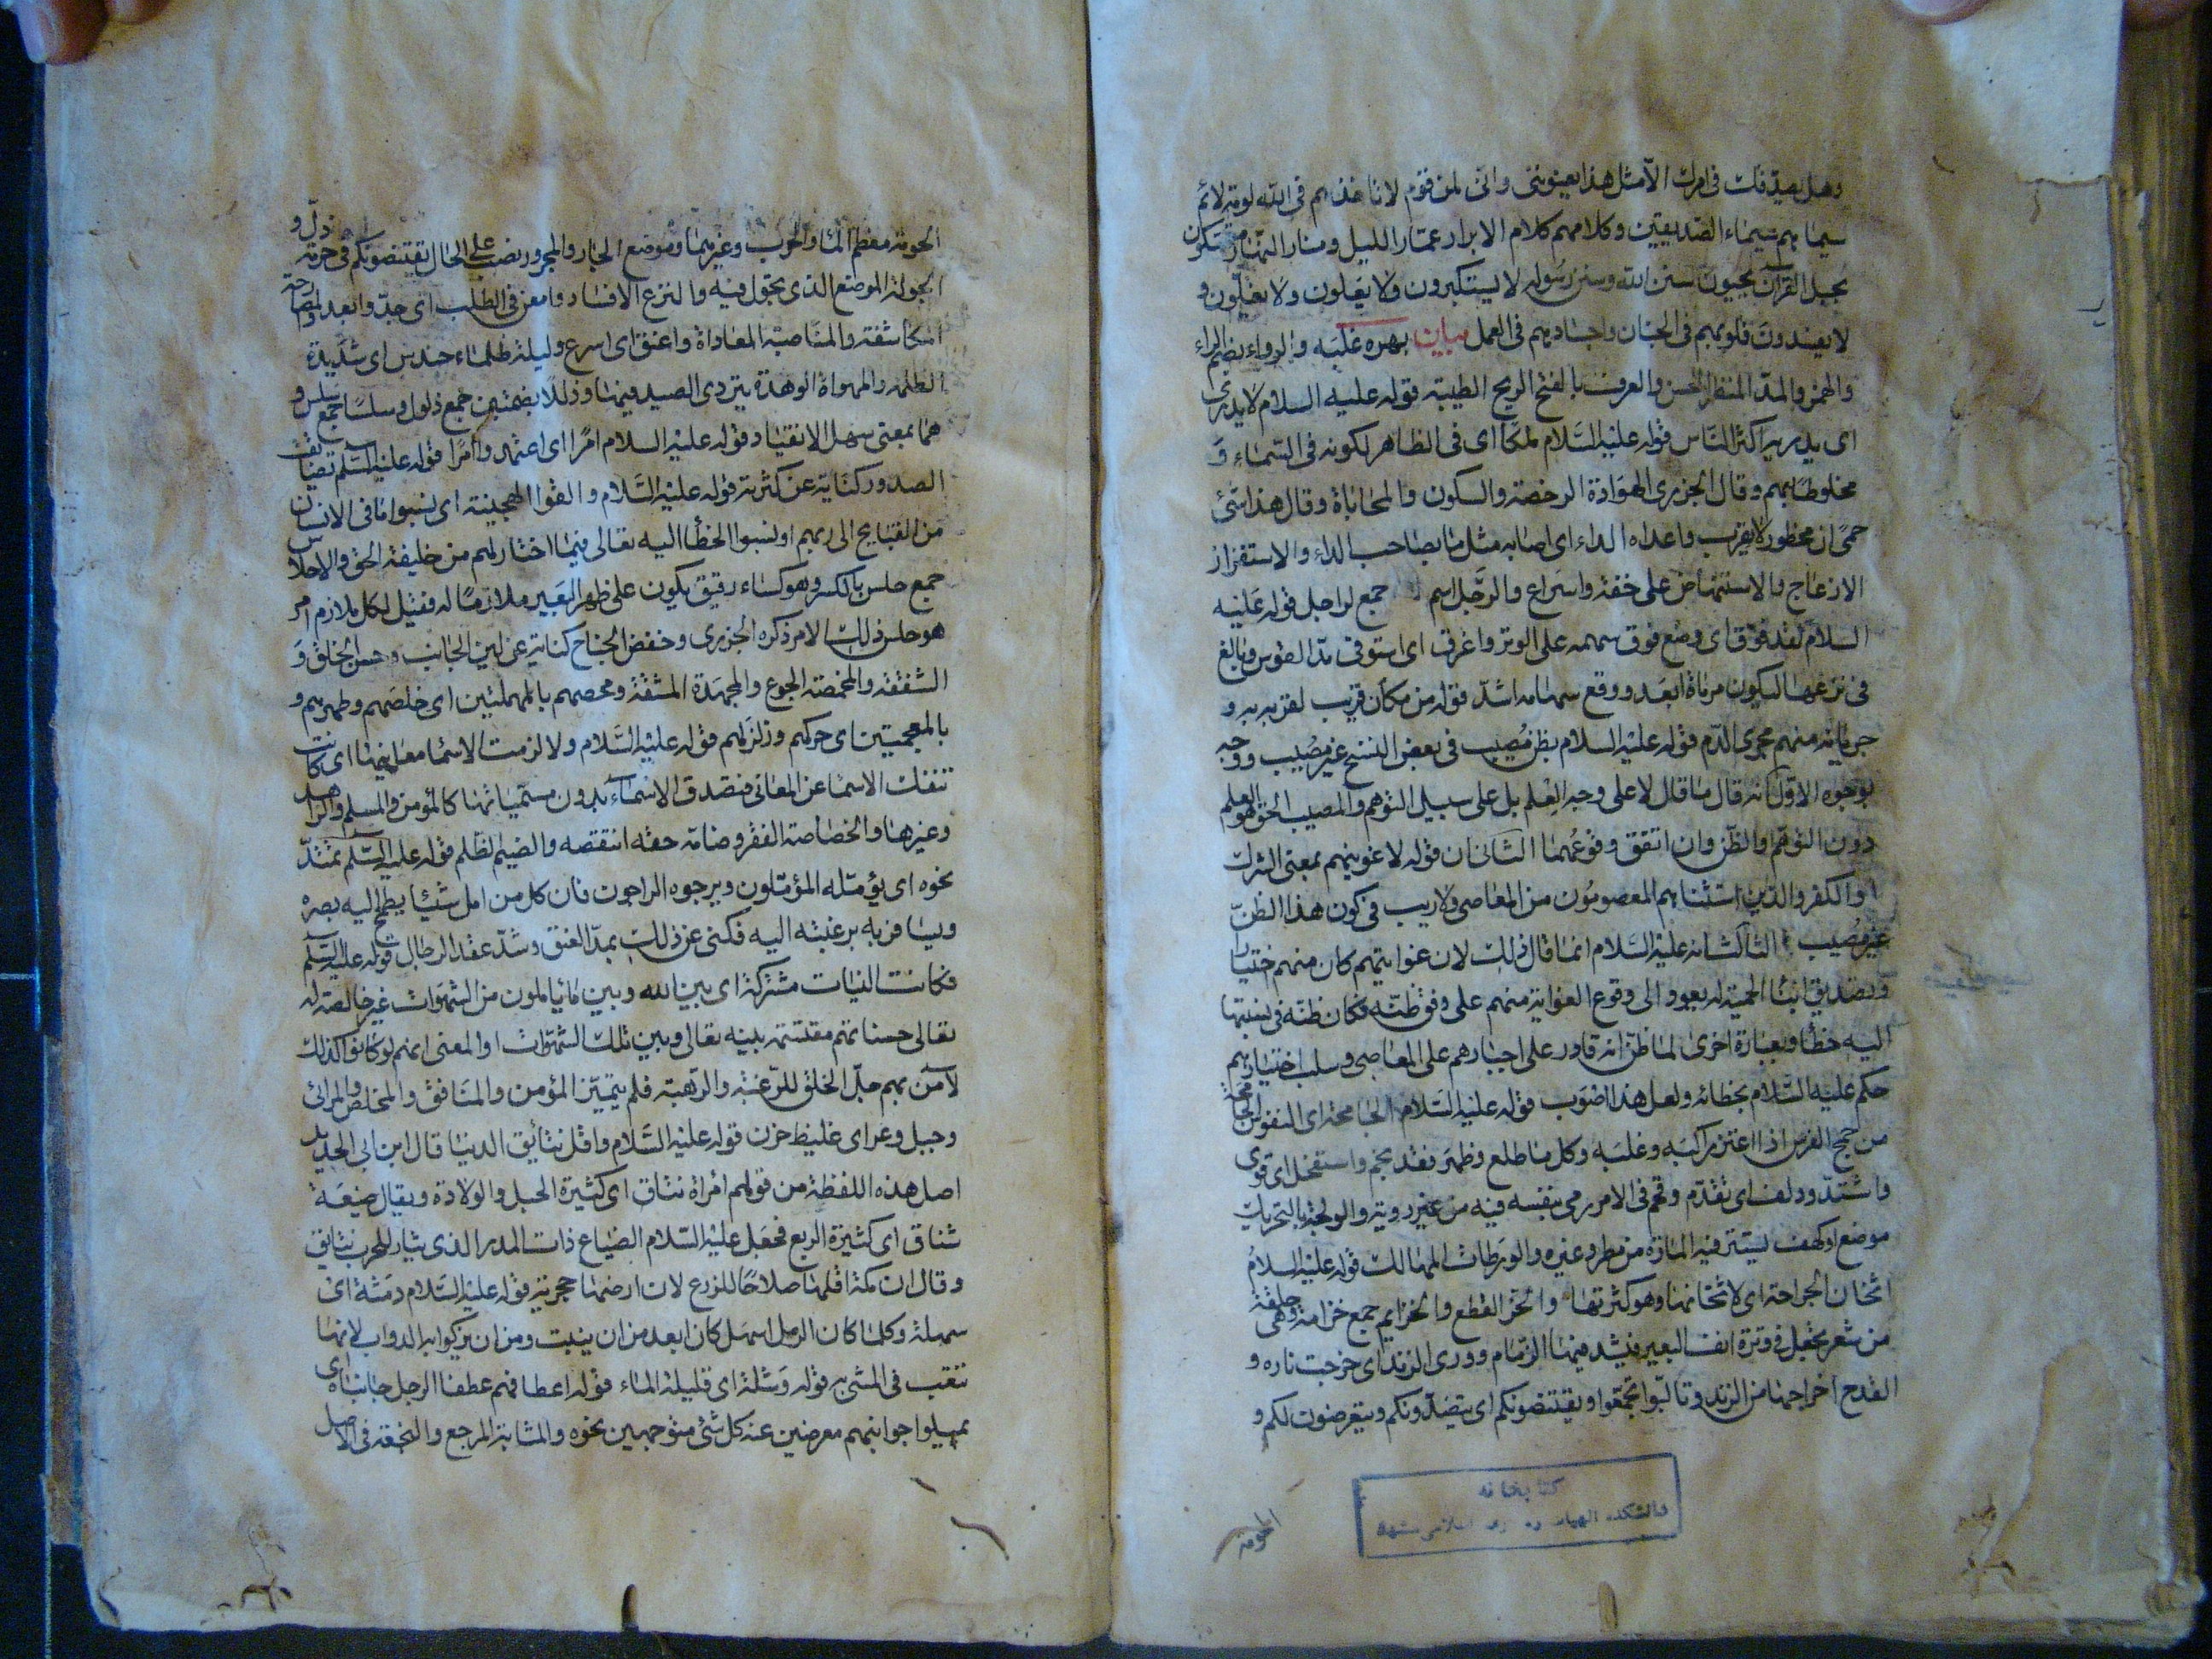 وهل يصدقك في امرك الا مثل هذا يعنونني واني لمن قوم لا تاخذهم في الله لومة لائم
سيماهم سيماء الصديقين وكلامهم كلام الابرار عمار الليل ومنار النهار متمسكون
بحبل القرآن يحيون سنن الله وسنن رسوله لا يستكبرون ولا يعلون ولا يغلون و
لا يفسدون قلوبهم في الجنان واجسادهم في العمل بيان بهره غلبه والرواء بضم الراء
والهمز والمد المنظر الحسن والعرف بالفتح الريح الطيبة قوله عليه السلام لا يدرى
اى يدريه اكثر الناس قوله عليه السلام ملكا اى في الظاهر لكونه في السماء و
مخلوطا بهم وقال الجزري الهوادة الرخصة والسكون والمحاباة وقال هذا شئ
حمى ان محظور لا يقرب واعداه الداء اى اصابه مثل ما بصاحب الداء والاستفزاز
الازعاج والاستنهاض على خفة واسراع والرجل اسم جمع لراجل قوله عليه
السلام لقد فوق اى وضع فوق سهمه على الوتر واغرق اى استوفى مد القوس وبالغ
في نزعها ليكون مرماة ابعد ووقع سهامه اشد قوله من مكان قريب لقربه به و
جريانه منهم مجرى الدم قوله عليه السلام بظن مصيب في بعض النسخ غير مصيب ووجه
بوجوه الاول انه قال ما قال لا على وجه العلم بل على سبيل التوهم والمصيب الحق هو العلم
دون التوهم والظن وان اتفق وقوعهما الثاني ان قوله لاغوينهم بمعنى الشرك
او الكفر والذين استثناهم المعصومون من المعاصي ولا ريب في كون هذا الظن
غير مصيب الثالث انه عليه السلام انما قال ذلك لان غوايتهم كان منهم اختيارا
وتصديق ابناء الحمية له يعود الى وقوع الغواية منهم على وفق ظنه فكان ظنه في نسبتها
اليه خطأ وبعبارة اخرى لما ظن انه قادر على اجبارهم على المعاصي وسلب اختيارهم
حكم عليه السلام بخطائه ولعل هذا اصوب قوله عليه السلام الجامحة اى النفوس الجامحة
من جمح الفرس اذا اعتز راكبه وغلبه وكل ما طلع وظهر فقد نجم واستفحل اى قوى
واشتد ودلف اى تقدم وقحم في الامر رمى بنفسه فيه من غير روية والولجة بالتحريك
موضع او كهف يستتر فيه المارة من مطر وغيره والورطات المهالك قوله عليه السلام
اثخان الجراحة اى لاثخانها وهو كثرتها والحز القطع والخزايم جمع خزامة وهي حلقة
من شعر يجعل في وترة انف البعير فيشد فيها الزمام وورى الزند اى خرجت ناره و
القدح اخراجها من الزند وتالبوا تجمعوا ويقتنصونكم اى يتصيدونكم ويتعرضون لكم و
الحومة
كتابخانه
دانشكده الهيات ومعارف اسلامى مشهد
الحومة معظم الماء والحرب وغيرهما وموضع الجار والمجرور نصب على الحال يقتنصونكم في حومة ذل و
الجولة الموضع الذي تجول فيه والنزغ الافساد وامعن في الطلب اى جد وابعد والمصارحة
المكاشفة والمناصبة المعاداة واعنق اى اسرع وليلة ظلماء حندس اى شديدة
الظلمة والمهواة الوهدة يتردى الصيد فيها وذللا بضمتين جمع ذلول وسلسا جمع سلس و
هما بمعنى سهل الانقياد قوله عليه السلام امرا اى اعتمدوا امرا قوله عليه السلم تضايقت
الصدور كناية عن كثرته قوله عليه السلام والقوا الهجينة اى نسبوا ما في الانسان
من القبايح الى ربهم او نسبوا الخطأ اليه تعالى فيما اختار لهم من خليفة الحق والاحلاس
جمع حلس بالكسر وهو كساء رقيق يكون على ظهر البعير ملازما له فقيل لكل ملازم امر
هو حلس ذلك الامر ذكره الجزري وخفض الجناح كناية عن لين الجانب وحسن الخلق و
الشفقة والمخمصة الجوع والمجهدة المشقة ومحصهم بالمهملتين اى خلصهم وطهرهم و
بالمعجمتين اى حركهم وزلزلهم قوله عليه السلام ولا لزمت الاسماء معانيها اى كانت
تنفك الاسماء عن المعاني فتصدق الاسماء بدون مسمياتها كالمؤمن والمسلم والزاهد
وغيرها والخصاصة الفقر وضامه حقه انتقصه والضيم الظلم قوله عليه السلم تمتد
نحوه اى يؤمله المؤملون ويرجوه الراجون فان كل من امل شيئا يطمح اليه بصره
ويسافر به برغبته اليه فكنى عن ذلك بمد العنق وشد عقد الرحال قوله عليه السلم
فكانت النيات مشتركة اى بين الله وبين ما ياملون من الشهوات غير خالصة له
تعالى حسناتهم مقتسمة بينه تعالى وبين تلك الشهوات او المعنى انهم لو كانوا كذلك
لآمن بهم جل الخلق للرغبة والرهبة فلم يتميز المؤمن والمنافق والمخلص والمرائى
وجبل وعر اى غليظ حزن قوله عليه السلام واقل نتائق الدنيا قال ابن ابى الحديد
اصل هذه اللفظة من قولهم امرأة نتاق اى كثيرة الحبل والولادة ويقال ضيعة
نتاق اى كثيرة الريع فجعل عليه السلام الضياع ذات المدر الذى يثار للحرب نتايق
وقال ان مكة اقلها صلاحا للزرع لان ارضها حجرية قوله عليه السلام دمثة اى
سهلة وكلما كان الرمل اسهل كان ابعد من ان ينبت ومن ان يزكوا به الدواب لانها
تتعب في المشى به قوله وشلة اى قليلة الماء قوله اعطافهم عطفا الرجل جانباه اى
يميلوا جوانبهم معرضين عنه كل شئ متوجهين نحوه والمثابة المرجع والنجعة في الاصل